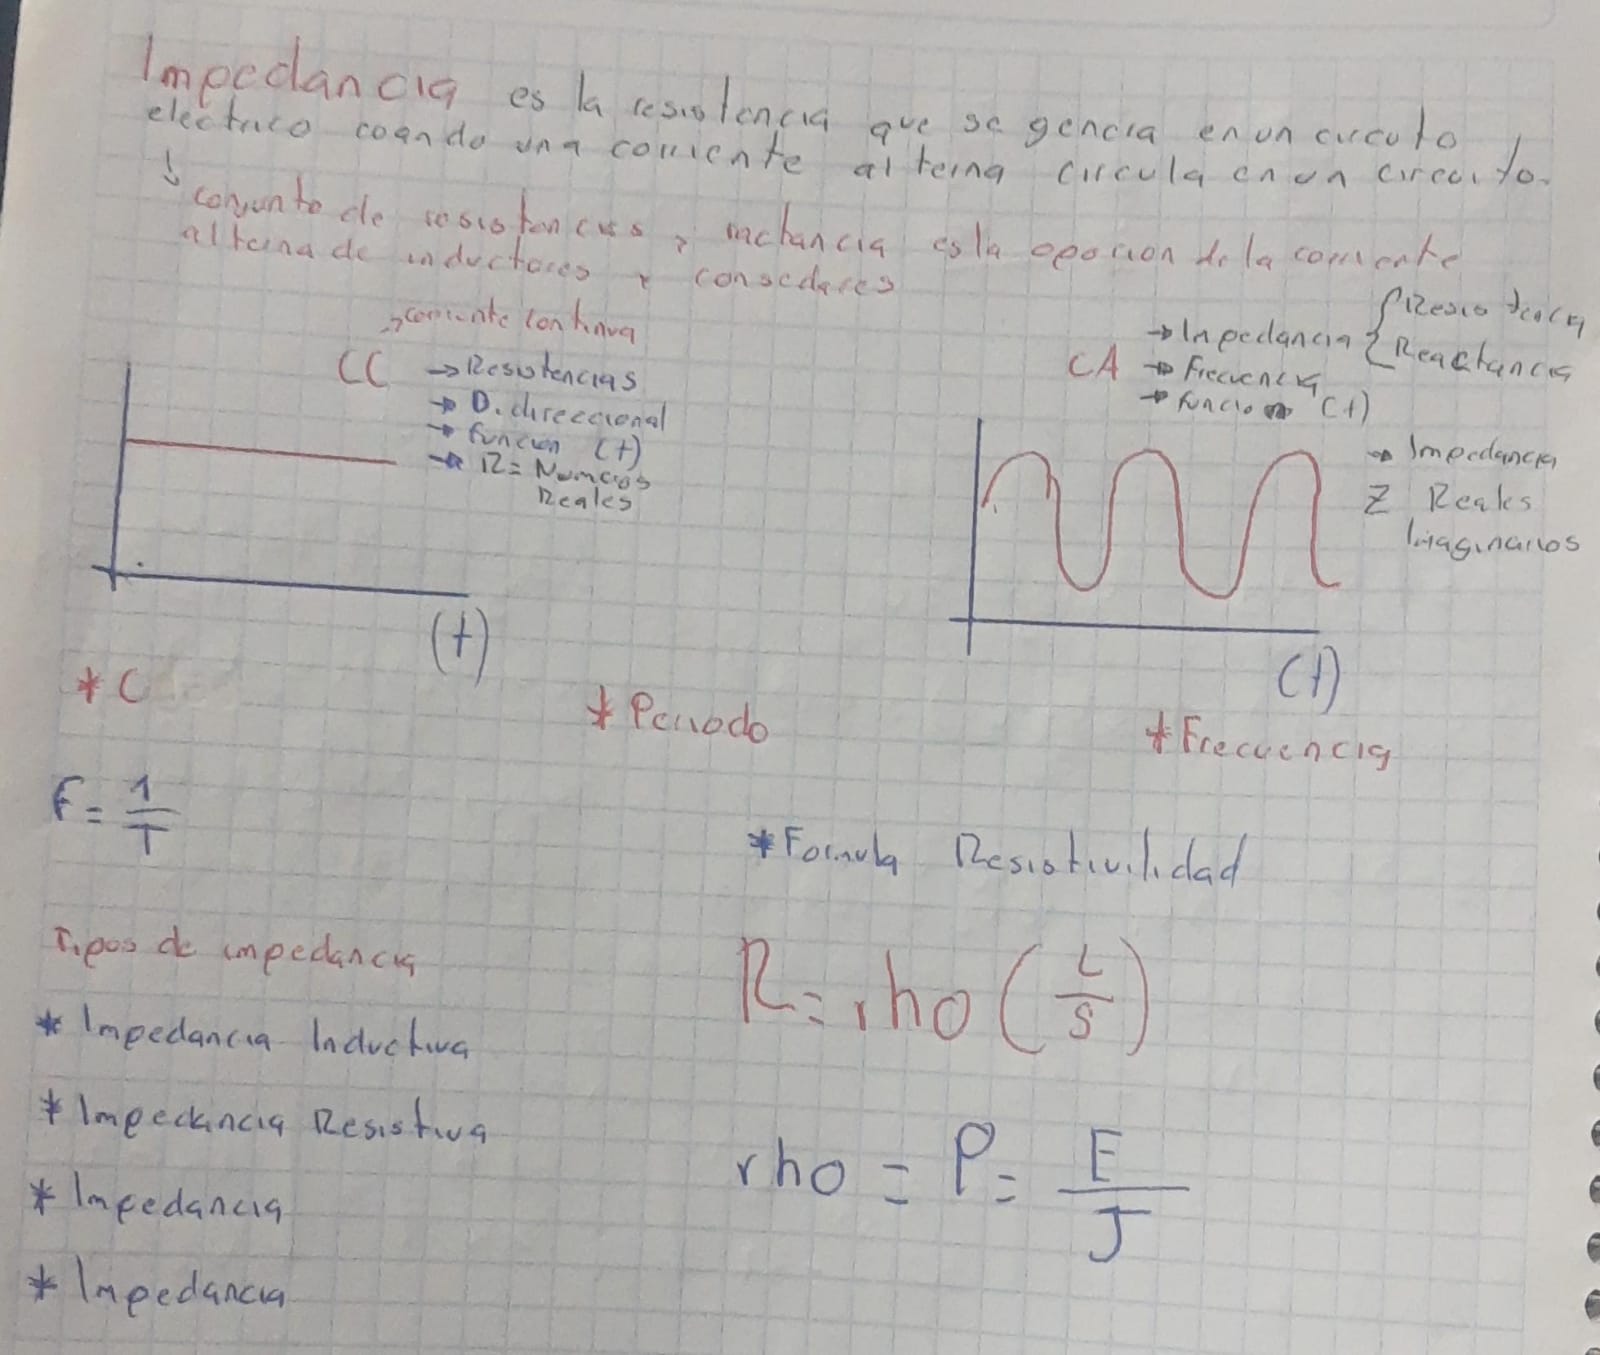 Impedancia es la resistencia que se genera en un circuto
electrico coando una corriente alterna circula en un circuito.
↓
conjunto de resistencias, ractancia es la oposicion de la corriente
alterna de inductores y
→ corriente continua
CC → Resistencias
→ D. direccional
→ funcion (t)
→ R = Numeros
Reales
(t)
CA → Impedancia { Resistencia
Reactancia
→ Frecuencia
→ funcion (t)
→ Impedancia
Z Reales
Imaginarios
(t)
* C
* Periodo
* Frecuencia
F = 1/T
* Formula Resistivilidad
Tipos de impedancia
R = rho (L/S)
* Impedancia Inductiva
* Impedancia Resistiva
rho = P = E/J
* Impedancia
* Impedancia